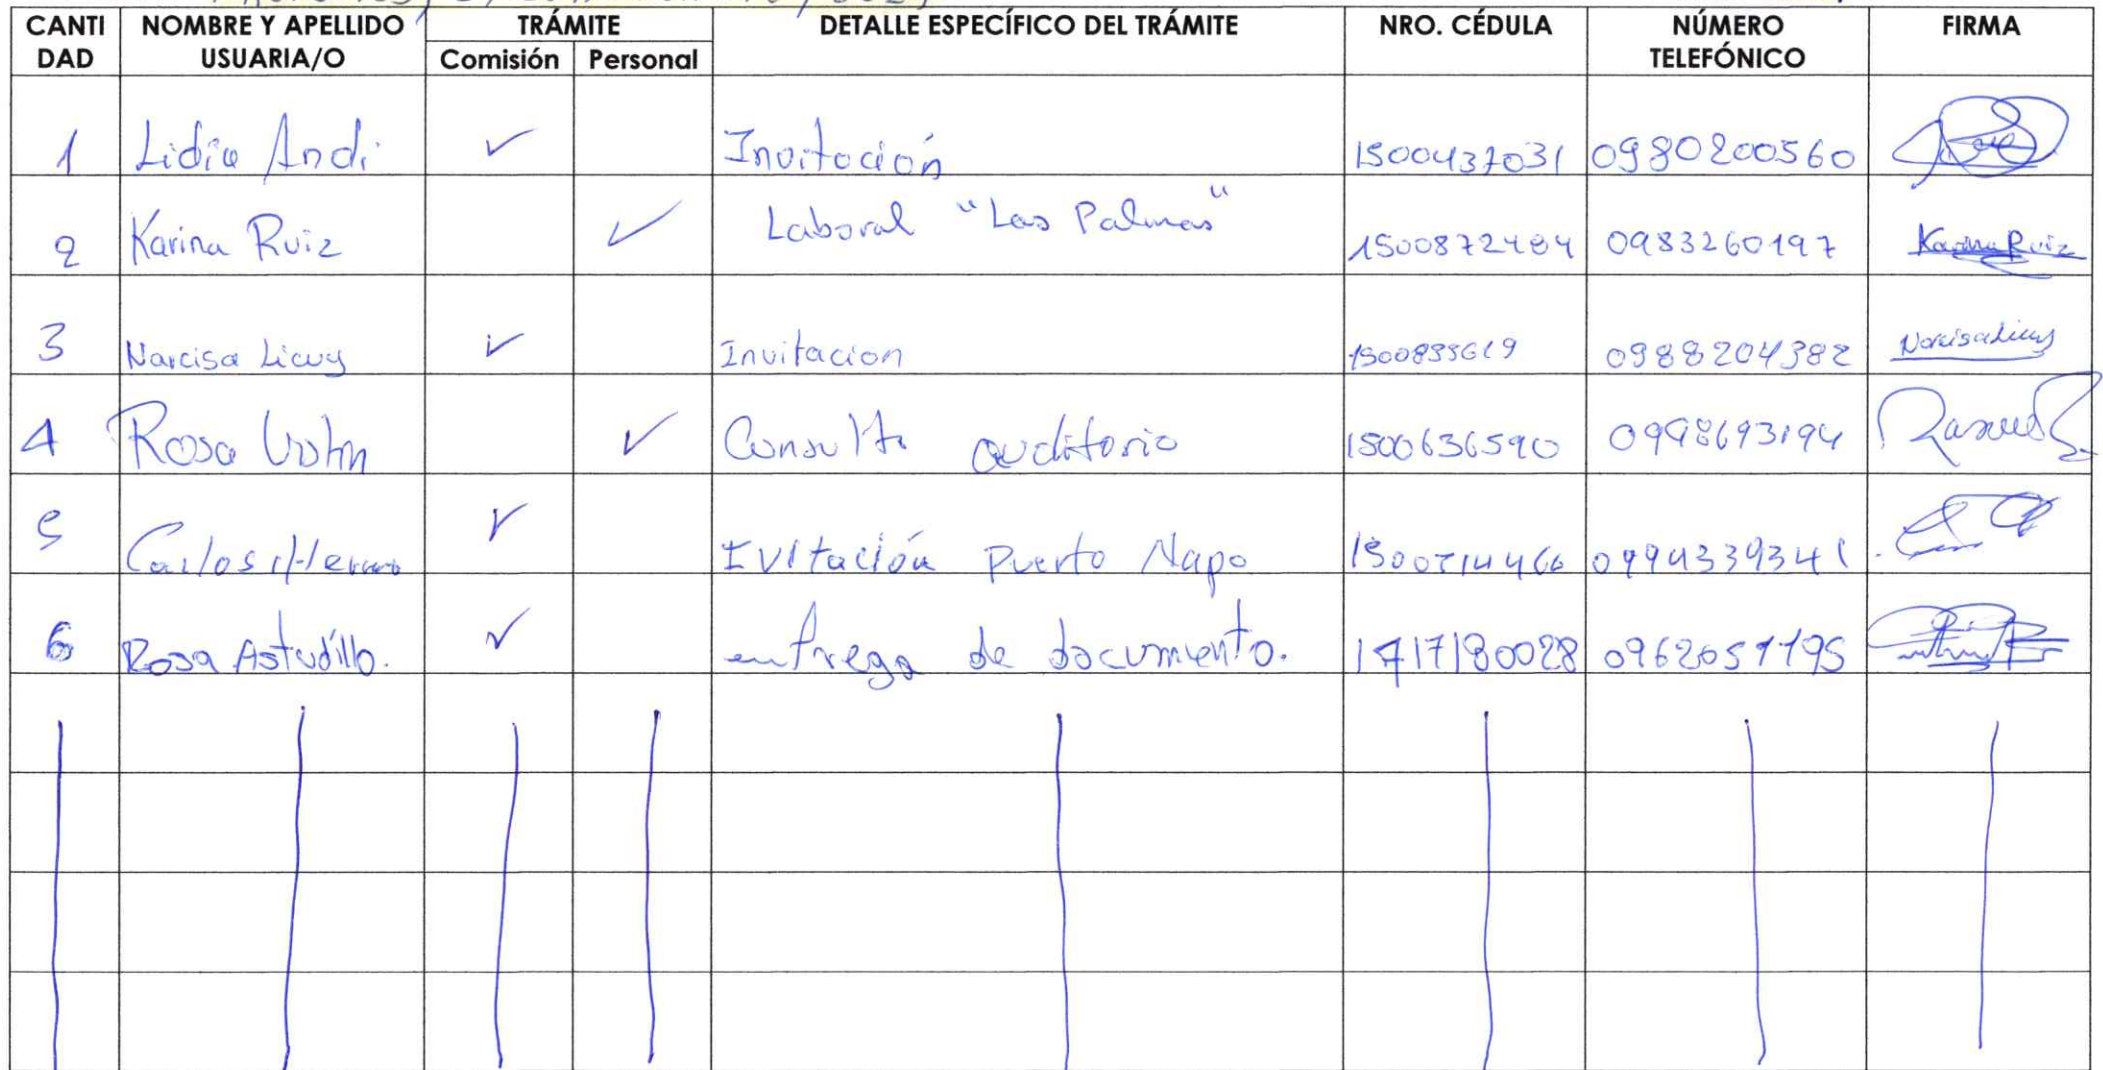 CANTI DAD NOMBRE Y APELLIDO USUARIA/O TRÁMITE Comisión Personal DETALLE ESPECÍFICO DEL TRÁMITE NRO. CÉDULA NÚMERO TELEFÓNICO FIRMA
1 Lidia Andi ✓ Invitación 1500437031 0980200560
2 Karina Ruiz ✓ Laboral "Las Palmas" 1500872484 0983260197 Karina Ruiz
3 Narcisa Licuy ✓ Invitacion 0988204382 Narcisa Licuy
4 Rosa ✓ Consulta auditorio 1500636590 0998693194
5 Carlos ✓ Ivitación Puerto Napo 0994339341
6 Rosa Astudillo. ✓ entrega de documento. 1717180028 0962051195